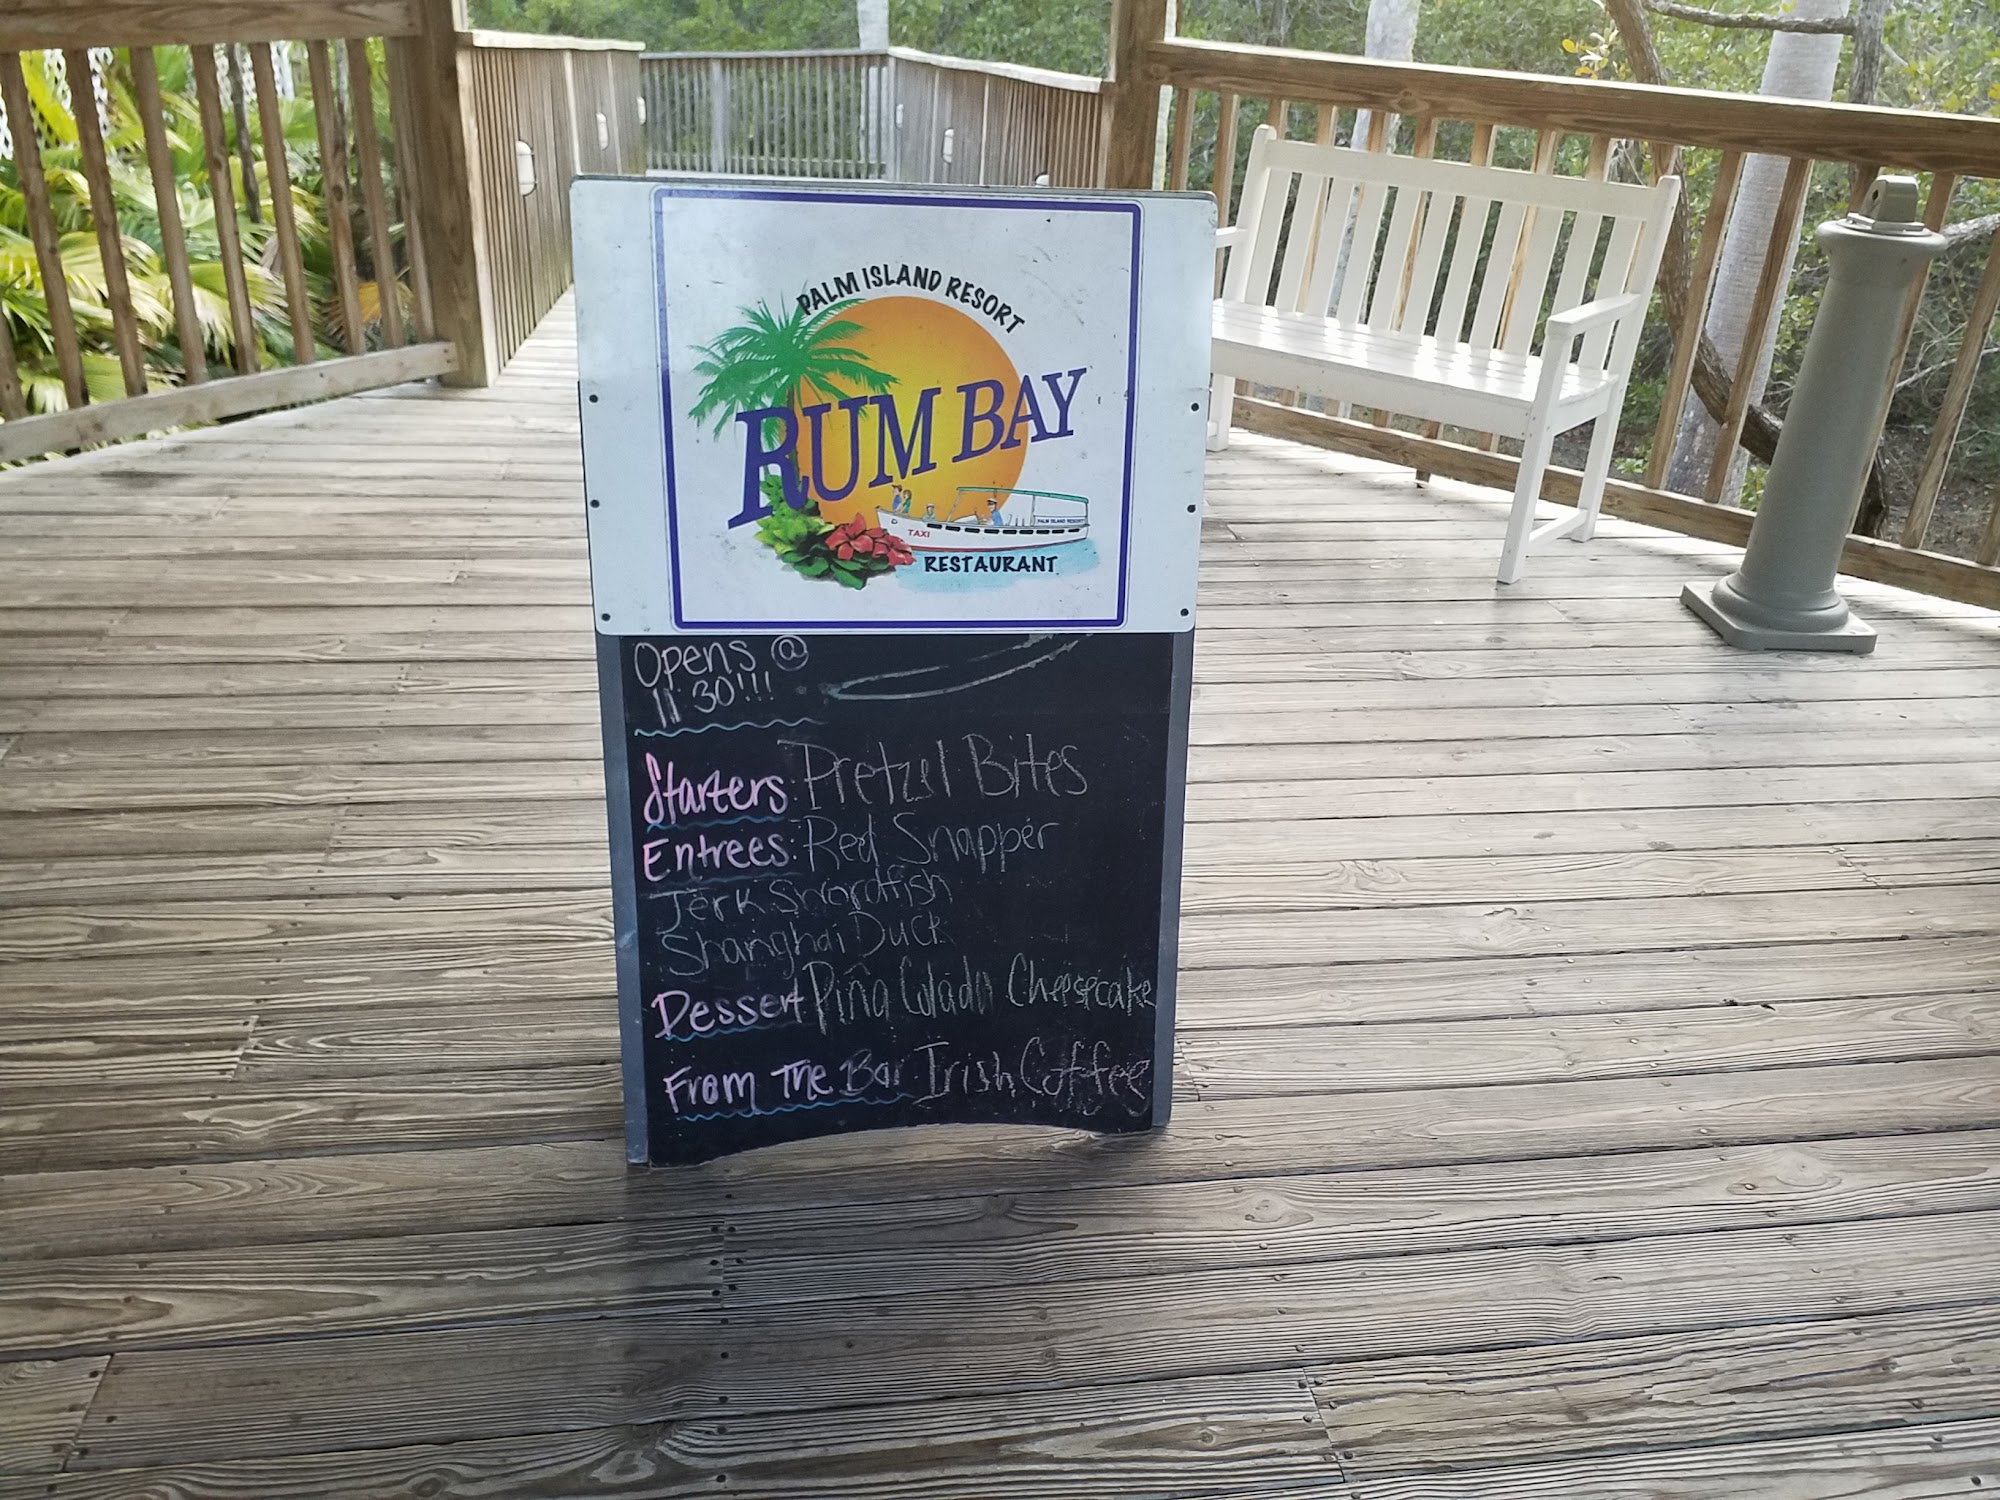 PALM ISLAND RESORT
RUM BAY
PALM ISLAND RESORT
TAXI
RESTAURANT
Opens @
11:30!!!
Starters: Pretzel Bites
Entrees: Red Snapper
Jerk Swordfish
Shanghai Duck
Dessert Piña Colada Cheesecake
From The Bar: Irish Coffee